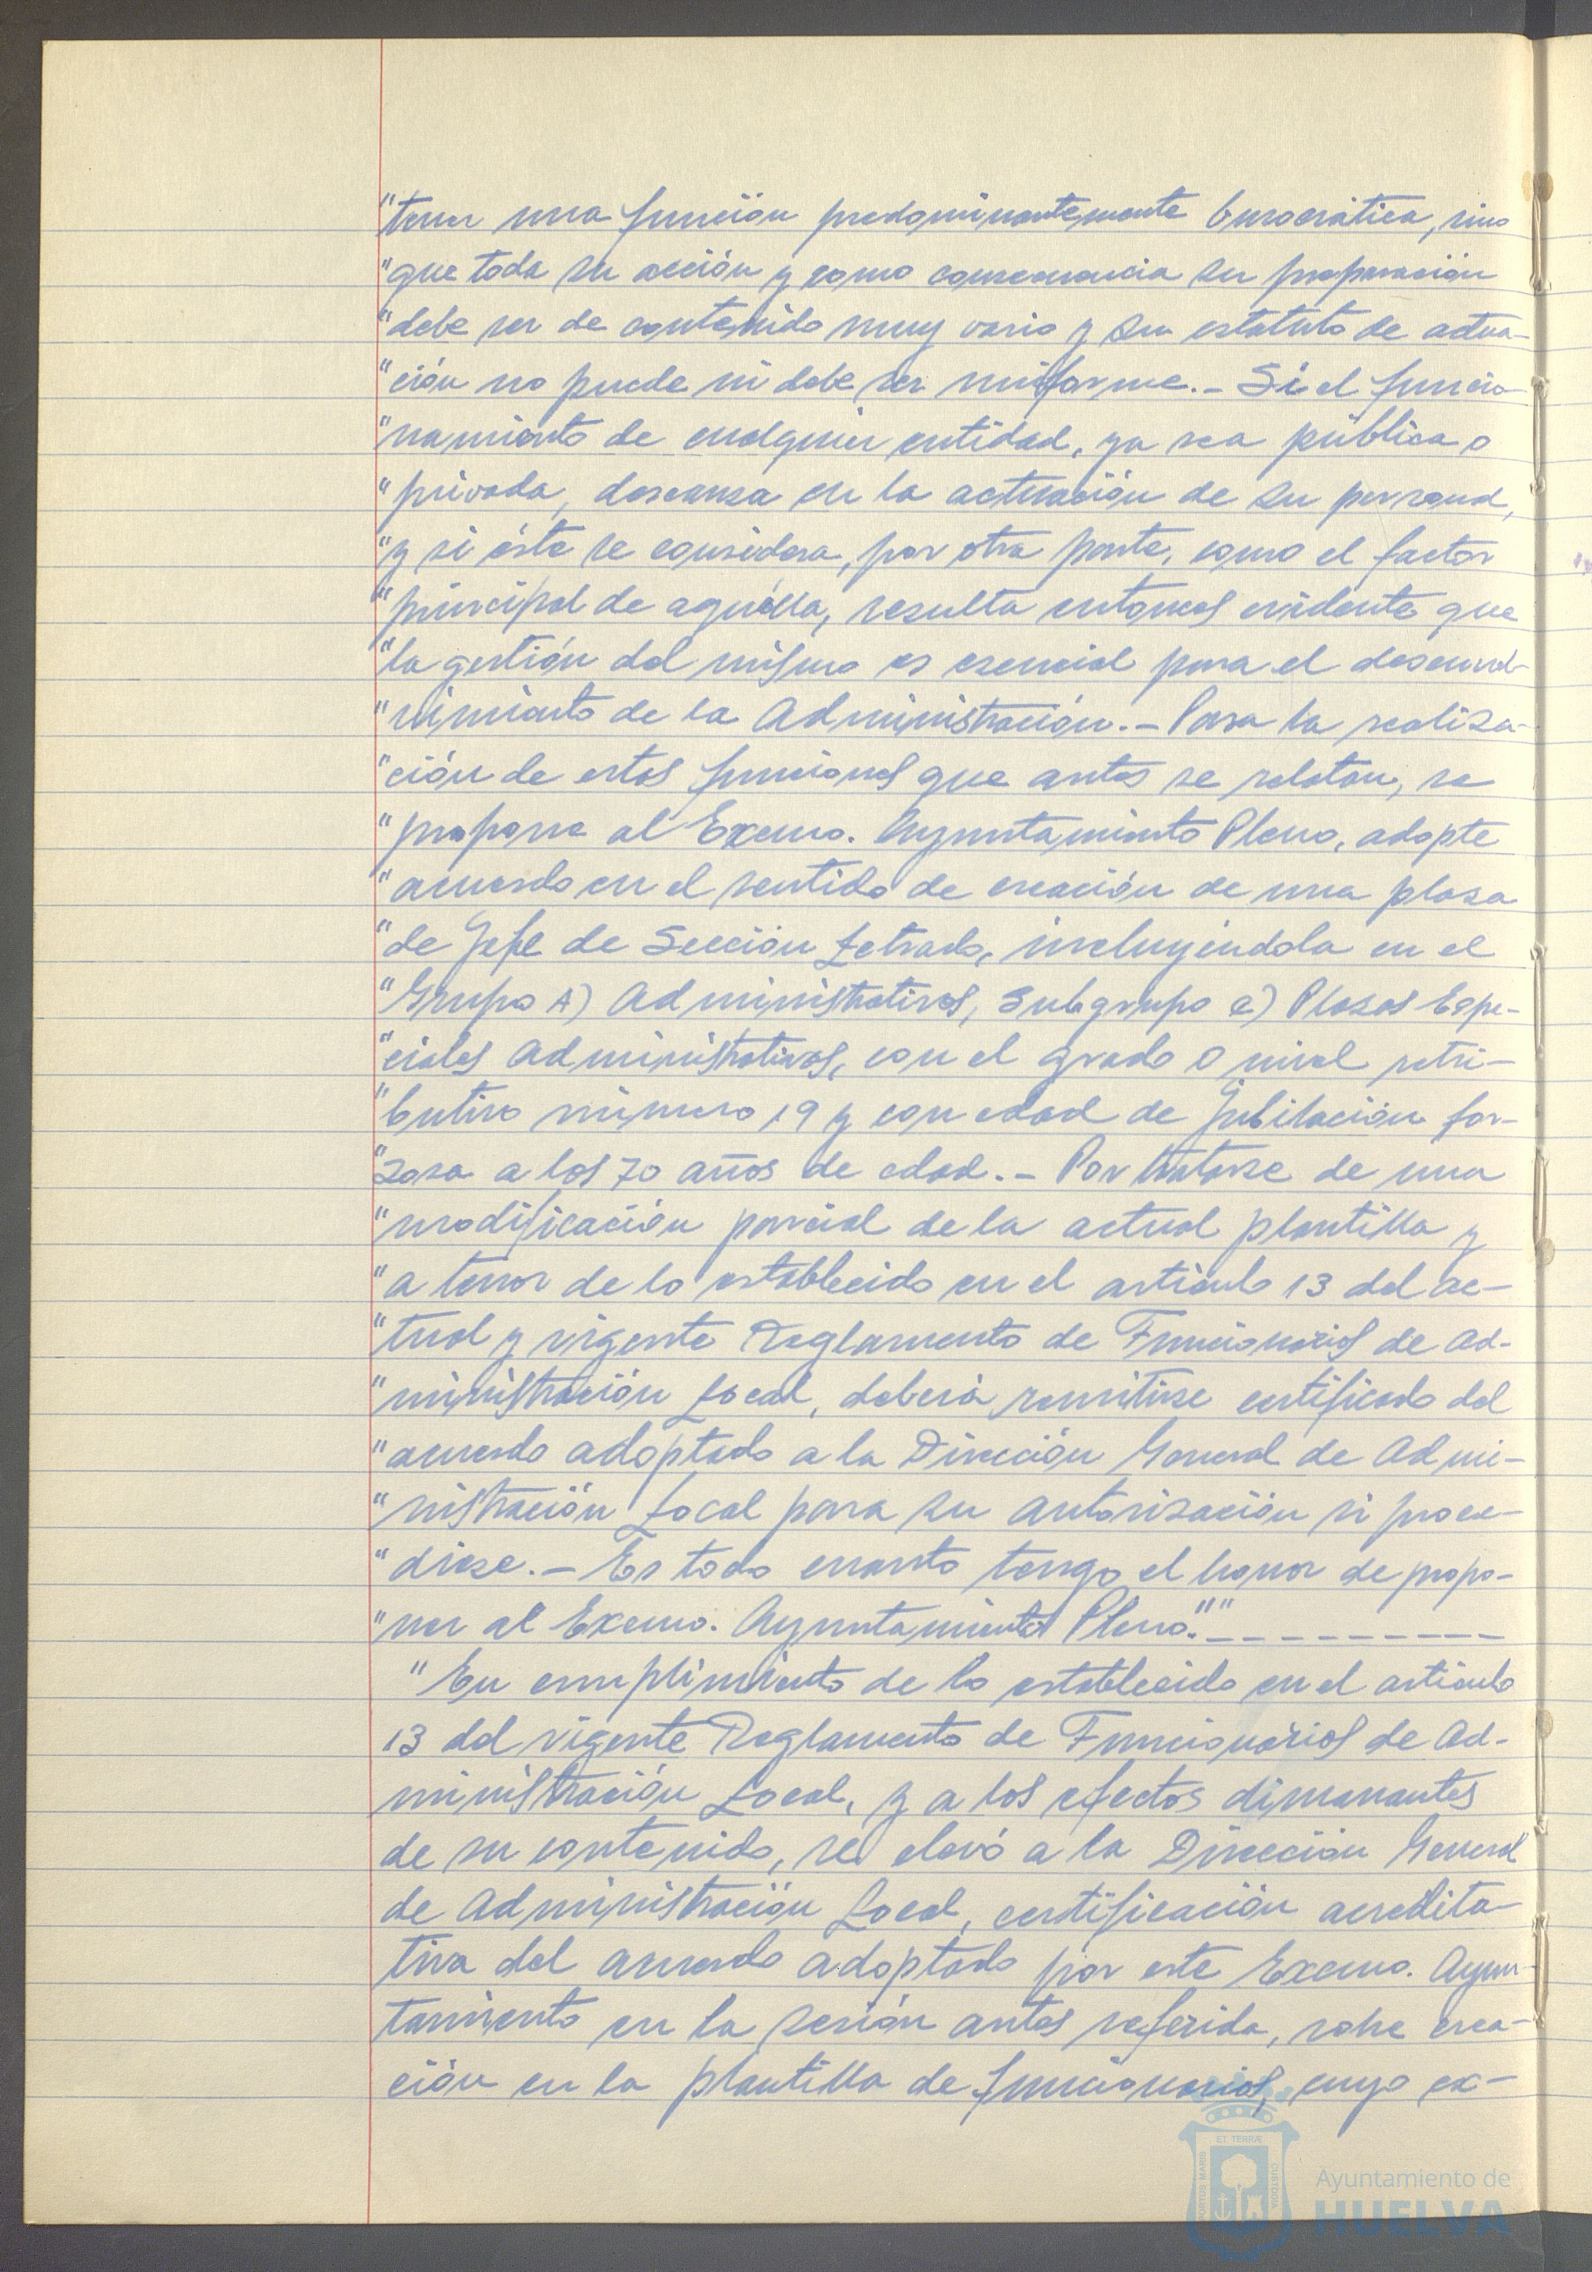 "tener una función predominantemente burocrática, sino
"que toda su acción y como consecuencia su preparación
"debe ser de contenido muy vario y su estatuto de actua-
"ción no puede ni debe ser uniforme.- Si el funcio-
"namiento de cualquier entidad, ya sea pública o
"privada, descansa en la actuación de su personal,
"y si éste se considera, por otra parte, como el factor
"principal de aquélla, resulta entonces evidente que
"la gestión del mismo es esencial para el desenvol-
"vimiento de la Administración.- Para la realiza-
"ción de estas funciones que antes se relatan, se
"propone al Excmo. Ayuntamiento Pleno, adopte
"acuerdo en el sentido de creación de una plaza
"de Jefe de Sección Letrado, incluyéndola en el
"Grupo A) Administrativos, Subgrupo e) Plazas Espe-
"ciales Administrativas, con el grado o nivel retri-
"butivo número 19 y con edad de jubilación for-
"zosa a los 70 años de edad.- Por tratarse de una
"modificación parcial de la actual plantilla y
"a tenor de lo establecido en el artículo 13 del ac-
"tual y vigente Reglamento de Funcionarios de Ad-
"ministración Local, deberá remitirse certificado del
"acuerdo adoptado a la Dirección General de Admi-
"nistración Local para su autorización si proce-
"diese.- Es todo cuanto tengo el honor de propo-
"ner al Excmo. Ayuntamiento Pleno.""_ _ _ _ _ _ _ _ _
"En cumplimiento de lo establecido en el artículo
13 del vigente Reglamento de Funcionarios de Ad-
ministración Local, y a los efectos dimanantes
de su contenido, se elevó a la Dirección General
de Administración Local, certificación acredita-
tiva del acuerdo adoptado por este Excmo. Ayun-
tamiento en la sesión antes referida, sobre crea-
ción en la plantilla de funcionarios, cuyo ex-
PORTUS MARIS
ET TERRÆ
CUSTODIA
Ayuntamiento de
HUELVA